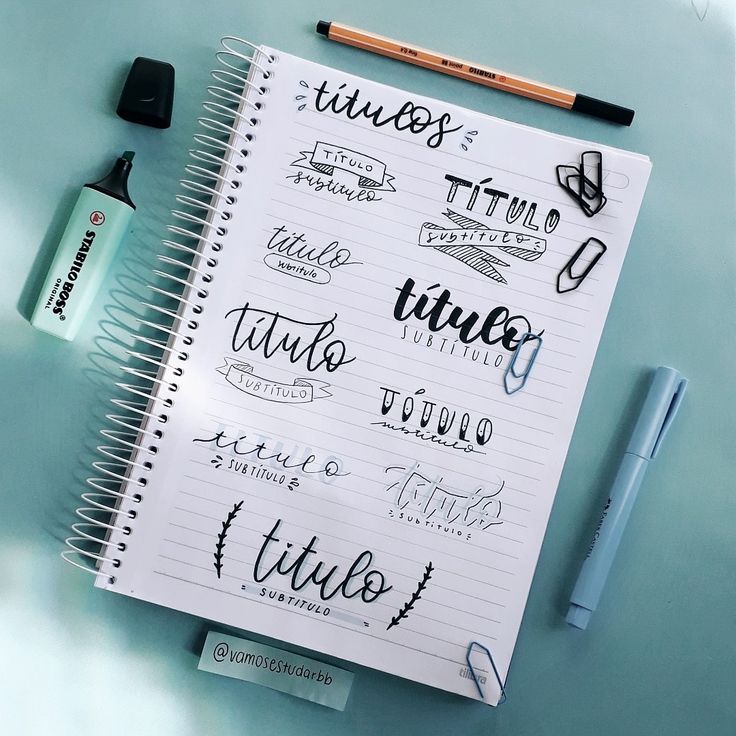 STABILO point 88 fine 0.4
títulos
TÍTULO
subtítulo
TÍTULO
subtítulo
título
subtítulo
título
SUBTÍTULO
título
SUBTÍTULO
TÍTULO
subtítulo
TÍTULO
título
SUBTÍTULO
título
SUBTÍTULO
título
SUBTÍTULO
tilibra
@vamosestudarbb
STABILO BOSS
ORIGINAL
FABER-CASTELL